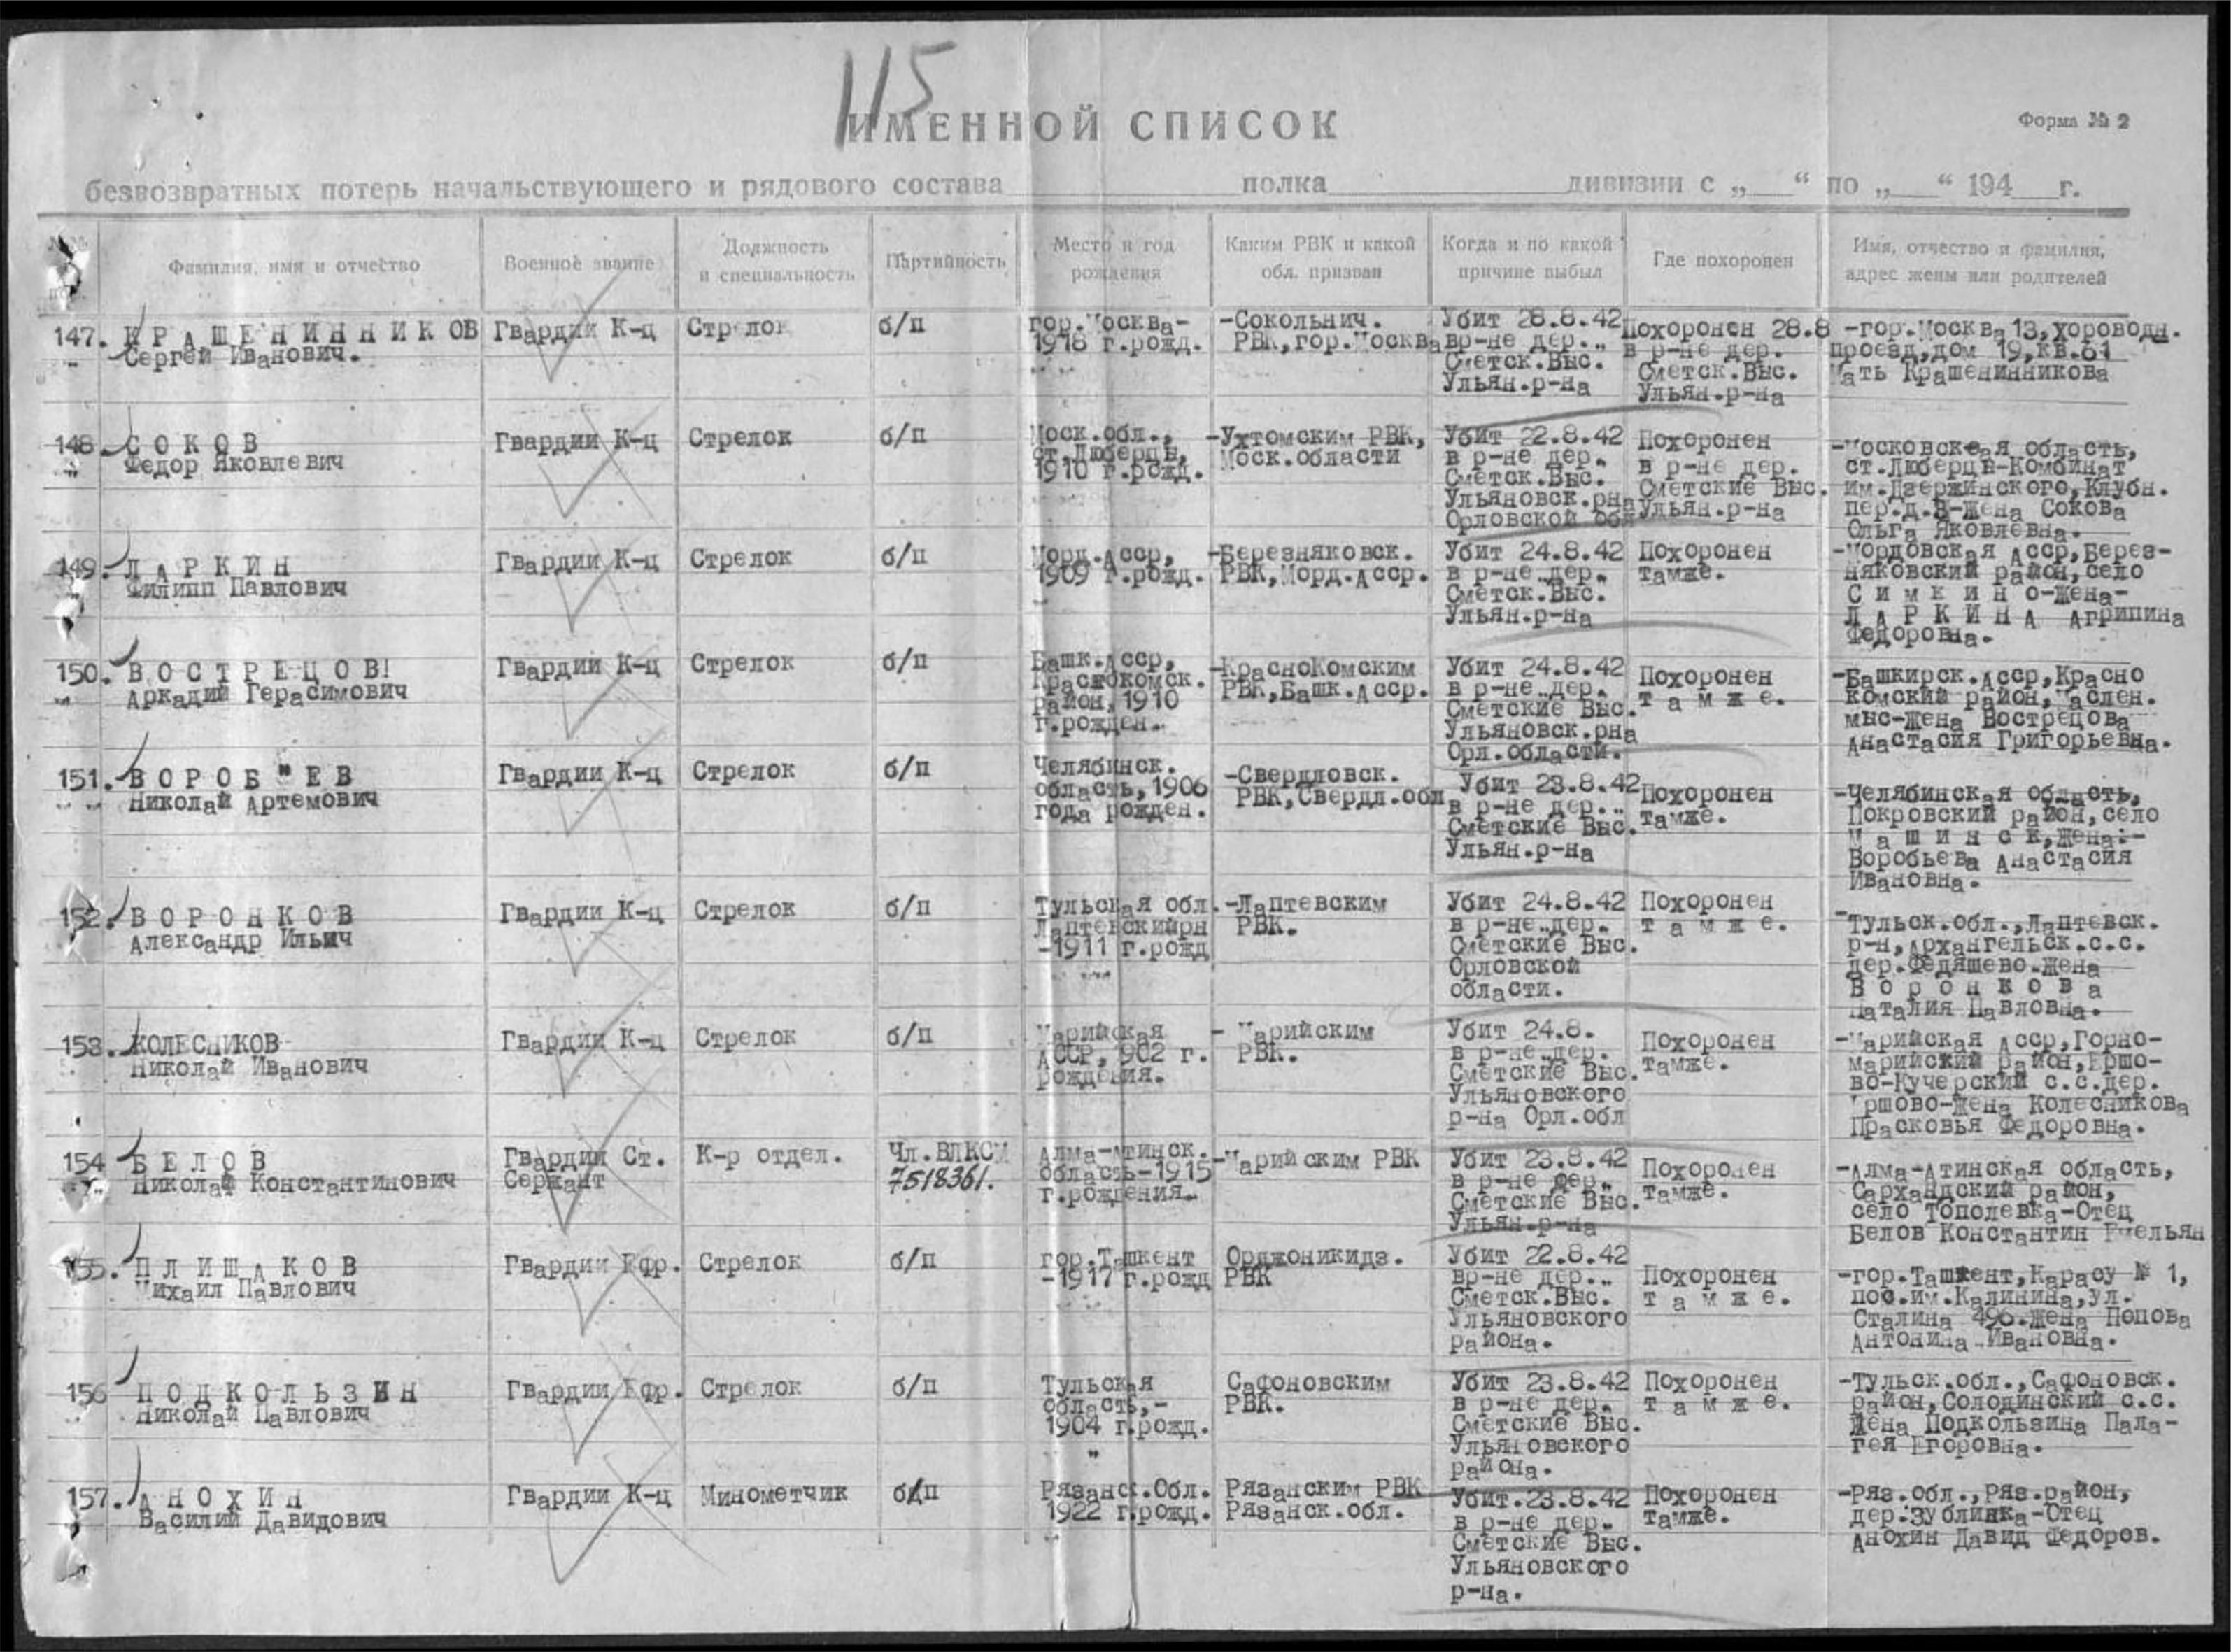 115
ИМЕННОЙ СПИСОК
Форма № 2
безвозвратных потерь начальствующего и рядового состава полка дивизии с „ “ по „ “ 194 г.
Фамилия, имя и отчество
Военное звание
Должность
и специальность
Партийность
Место и год
рождения
Каким РВК и какой
обл. призван
Когда и по какой
причине выбыл
Где похоронен
Имя, отчество и фамилия,
адрес жены или родителей
147. К Р А Ш Е Н И Н Н И К ОВ
Сергей Иванович.
Гвардии К-ц
Стрелок
б/п
гор.Москва-
1918 г.рожд.
-Сокольнич.
РВК,гор.Москва
Убит 28.8.42
вр-не дер..
Сметск.Выс.
Ульян.р-на
Похоронен 28.8
в р-не дер.
Сметск.Выс.
Ульян.р-на
-гор.Москва 13,хороводн.
проезд,дом 19,кв.61
Мать Крашенинникова
148 С О К О В
Федор Яковлевич
Гвардии К-ц
Стрелок
б/п
Моск.обл.,
ст.Люберцы,
1910 г.рожд.
-Ухтомским РВК,
Моск.области
Убит 22.8.42
в р-не дер.
Сметск.Выс.
Ульяновск.рна
Орловской обл
Похоронен
в р-не дер.
Сметские Выс.
Ульян.р-на
-Московская область,
ст.Люберцы-Комбинат
им.Дзержинского,Клубн.
пер.д.8-жена Сокова
Ольга Яковлевна.
149. Л А Р К И Н
Филипп Павлович
Гвардии К-ц
Стрелок
б/п
Морд.Асср,
1909 г.рожд.
-Березняковск.
РВК,Морд.Асср.
Убит 24.8.42
в р-не дер.
Сметск.Выс.
Ульян.р-на
Похоронен
тамже.
-Мордовская Асср,Берез-
няковский район,село
С и м к и н о-жена-
Л А Р К И Н А Агрипина
Федоровна.
150. В О С Т Р Е Ц О В!
Аркадий Герасимович
Гвардии К-ц
Стрелок
б/п
Башк.Асср,
Краснокомск.
район,1910
г.рожден.
-Краснокомским
РВК,Башк.Асср.
Убит 24.8.42
в р-не дер.
Сметские Выс.
Ульяновск.рна
Орл.области.
Похоронен
т а м ж е.
-Башкирск.Асср,Красно
комский район,Маслен.
мыс-жена Вострецова
Анастасия Григорьевна.
151. В О Р О Б " Е В
Николай Артемович
Гвардии К-ц
Стрелок
б/п
Челябинск.
область,1906
года рожден.
-Свердловск.
РВК,Свердл.обл
Убит 23.8.42
в р-не дер..
Сметские Выс.
Ульян.р-на
Похоронен
тамже.
-Челябинская область,
Покровский район,село
М а ш и н с к,жена:-
Воробьева Анастасия
Ивановна.
152. В О Р О Н К О В
Александр Ильич
Гвардии К-ц
Стрелок
б/п
Тульская обл.
Лаптевскийрн
-1911 г.рожд
-Лаптевским
РВК.
Убит 24.8.42
в р-не дер.
Сметские Выс.
Орловской
области.
Похоронен
т а м ж е.
-Тульск.обл.,Лаптевск.
р-н,Архангельск.с.с.
дер.Федяшево-жена
В о р о н к о в а
Наталия Павловна.
153. КОЛЕСНИКОВ
Николай Иванович
Гвардии К-ц
Стрелок
б/п
Марийская
АССР, 902 г.
рождения.
- Марийским
РВК.
Убит 24.8.
в р-не дер.
Сметские Выс.
Ульяновского
р-на Орл.обл
Похоронен
тамже.
-Марийская Асср,Горно-
марийский район,Ершо-
во-Кучерский с.с.дер.
Ершово-жена Колесникова
Прасковья Федоровна.
154 Б Е Л О В
Николай Константинович
Гвардии Ст.
Сержант
К-р отдел.
Чл.ВЛКСМ
7518361.
Алма-Атинск.
область-1915
г.рождения.
-Марийским РВК
Убит 23.8.42
в р-не дер.
Сметские Выс.
Ульян.р-на
Похоронен
тамже.
-Алма-Атинская область,
Сархандский район,
село Тополевка-Отец
Белов Константин Емельян
155. П Л И Ш А К О В
Михаил Павлович
Гвардии Ефр.
Стрелок
б/п
гор.Ташкент
-1917 г.рожд
Орджоникидз.
РВК
Убит 22.8.42
вр-не дер..
Сметск.Выс.
Ульяновского
района.
Похоронен
т а м ж е.
-гор.Ташкент,Карасу № 1,
пос.им.Калинина,ул.
Сталина 496.жена Попова
Антонина Ивановна.
156 П О Д К О Л Ь З И Н
Николай Павлович
Гвардии Ефр.
Стрелок
б/п
Тульская
область,-
1904 г.рожд.
"
Сафоновским
РВК.
Убит 23.8.42
в р-не дер.
Сметские Выс.
Ульяновского
района.
Похоронен
т а м ж е.
-Тульск.обл.,Сафоновск.
район,Солодинский с.с.
Жена Подкользина Пала-
гея Егоровна.
157. А Н О Х И Н
Василий Давидович
Гвардии К-ц
Минометчик
б/п
Рязанск.Обл.
1922 г.рожд.
Рязанским РВК
Рязанск.обл.
Убит.23.8.42
в р-не дер.
Сметские Выс.
Ульяновского
р-на.
Похоронен
тамже.
-Ряз.обл.,Ряз.район,
дер.Зублинка-Отец
Анохин Давид Федоров.